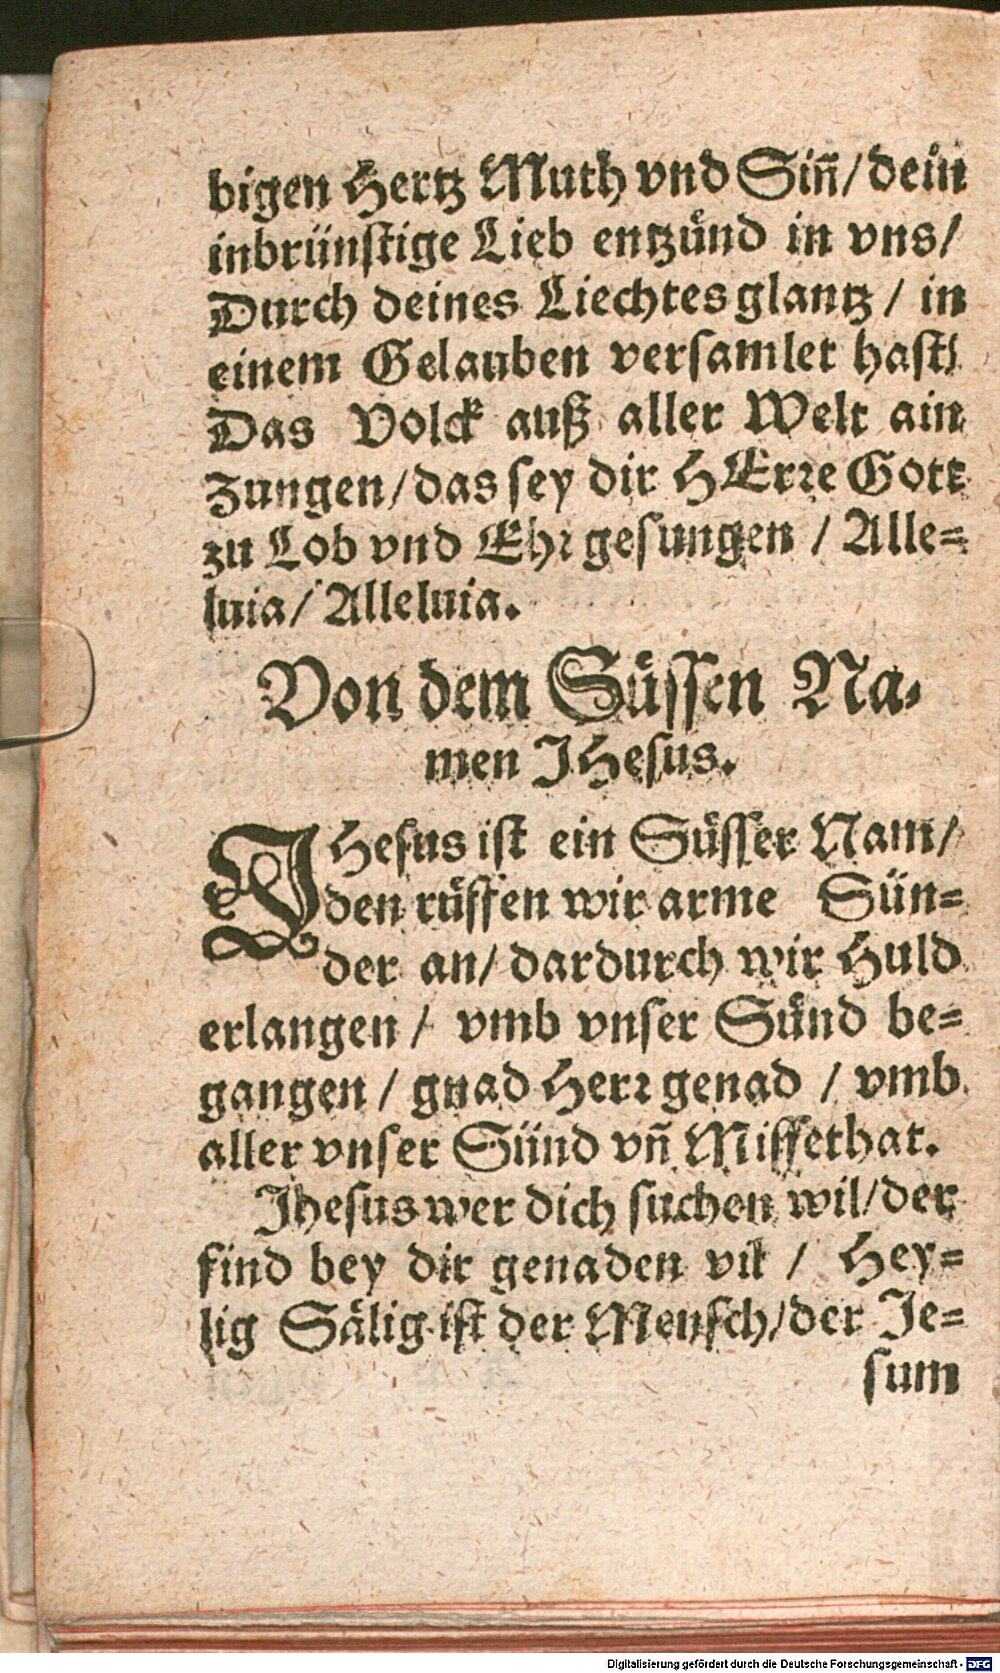 bigen Hertz Muth vnd Sin̄/ dein
inbrünſtige Lieb entzünd in vns/
Durch deines Liechtes glantz / in
einem Gelauben verſamlet haſt/
Das Volck auß aller Welt ain
Zungen/ das ſey dir HErre Gott
zu Lob vnd Ehr geſungen / Alle=
luia/ Alleluia.
Von dem Süſſen Na-
men JHeſus.
JHeſus iſt ein Süſſer Nam/
den rüffen wir arme Sün=
der an/ dardurch wir Huld
erlangen / vmb vnſer Sünd be=
gangen / gnad Herr genad / vmb
aller vnſer Sünd vn̄ Miſſethat.
Jheſus wer dich ſuchen wil/ der
find bey dir genaden vil / Hey=
lig Sälig iſt der Menſch/ der Je=
ſum
Digitalisierung gefördert durch die Deutsche Forschungsgemeinschaft - DFG